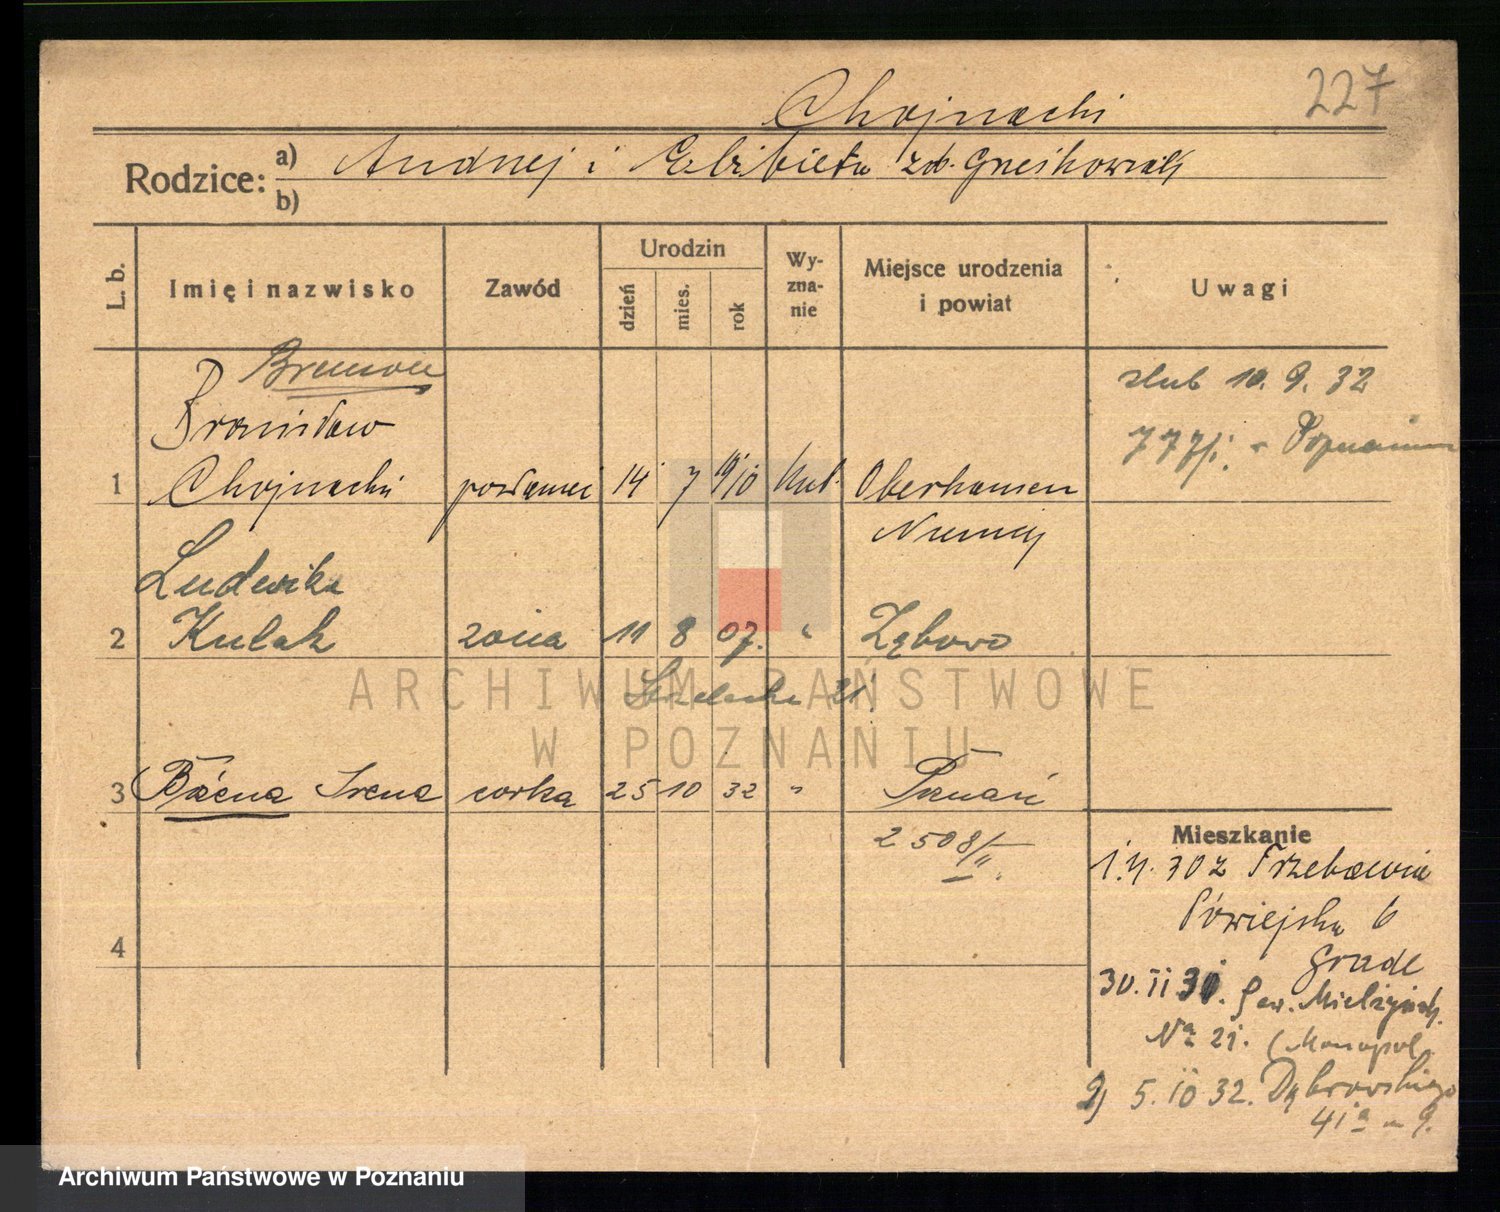 227
Chojnacki
Rodzice: a) Andrzej i Elżbieta zd. Grześkowiak
b)
L. b. Imię i nazwisko Zawód Urodzin dzień mies. rok Wyznanie Miejsce urodzenia i powiat Uwagi
ślub 10. 9. 32
777/i. Poznaniu
Bronisław
1 Chojnacki 14 7 1910 kat. Oberhausen
Niemcy
Ludwika
2 Kulak żona 11 8 07. " Ząbowo
21
3 Bożena Irena córka 25 10 32 " Poznań
2508/II.
4
Mieszkanie
1.4.30 z Trzebawia
Półwiejska 6
30.II 31. Sew. Mielżyńsk.
No 21. (Monopol
2) 5.10 32. Dąbrowskiego
41a m 9.
ARCHIWUM PAŃSTWOWE
W POZNANIU
Archiwum Państwowe w Poznaniu